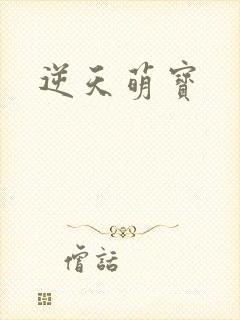 逆天萌寶
僧話